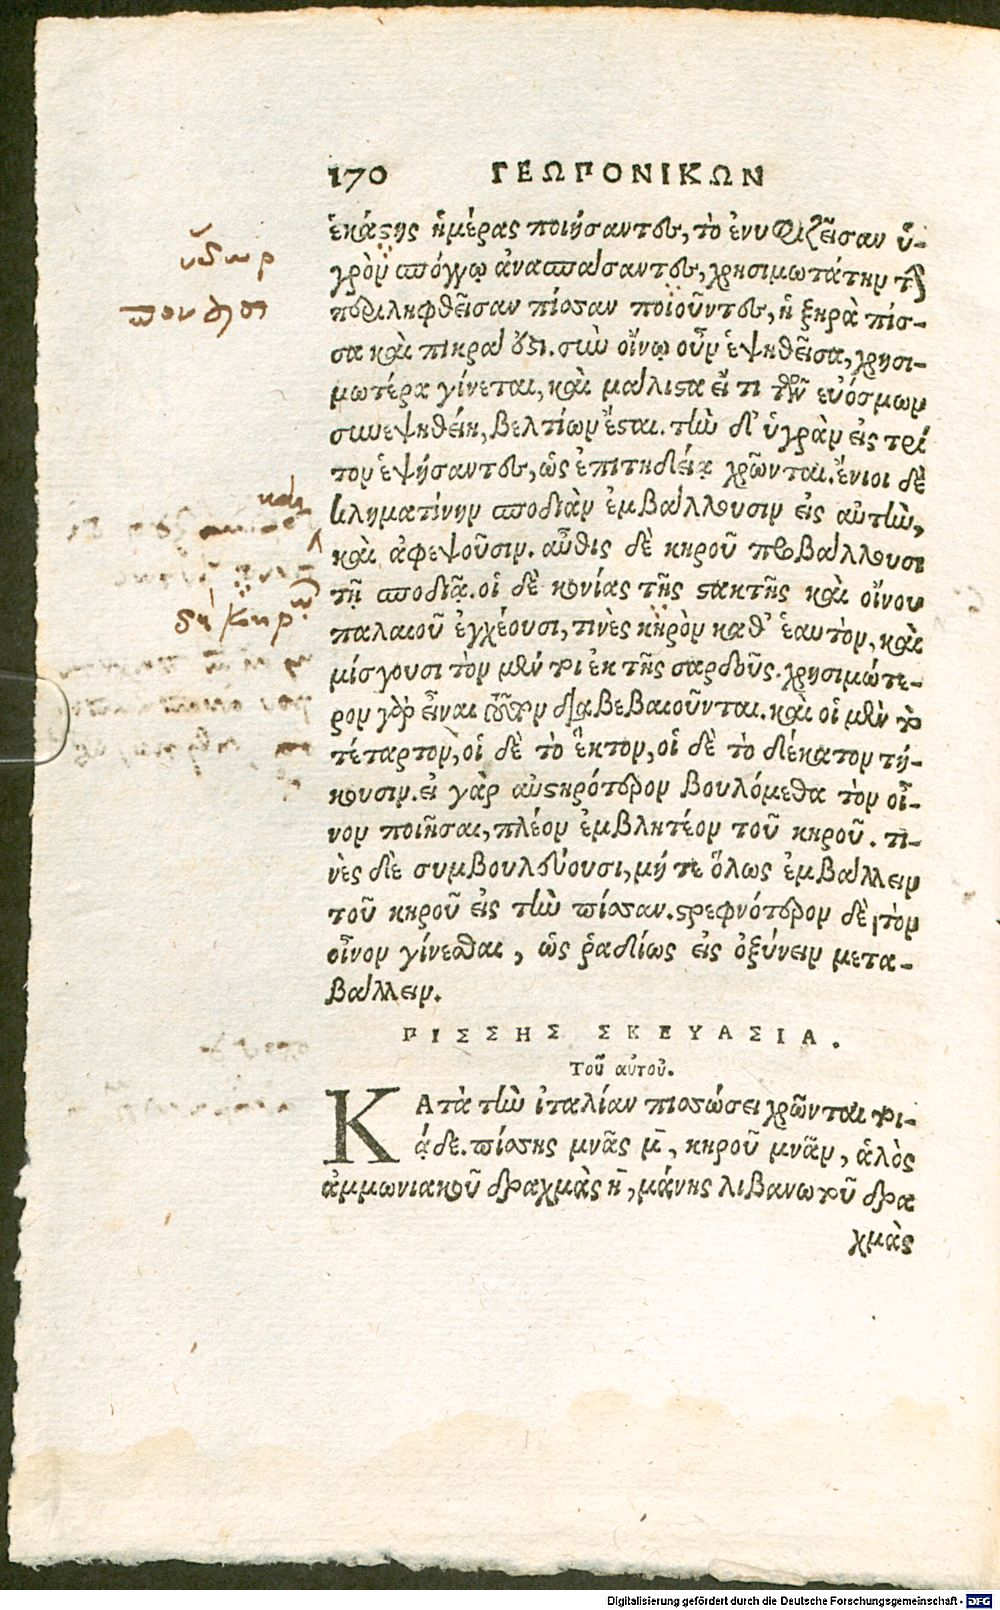 170 ΓΕΩΠΟΝΙΚΩΝ
ἑκάστης ἡμέρας ποιήσαντες, τὸ ἐνυφιζῆσαν ὑ-
γρὸν σπόγγῳ ἀνασπάσαντες, χρησιμωτάτην τὴν
περιληφθεῖσαν πίσσαν ποιοῦντες, ἡ ξηρὰ πίσ-
σα καὶ πικρά ἐστι. σὺν οἴνῳ οὖν ἑψηθεῖσα, χρησι-
μωτέρα γίνεται, καὶ μάλιστα εἴ τι τῶν εὐόσμων
συνεψηθείη, βελτίων ἔσται. τὴν δ' ὑγρὰν εἰς τρί
τον ἑψήσαντες, ὡς ἐπιτηδείᾳ χρῶνται. ἔνιοι δὲ
κληματίνην σποδιὰν ἐμβάλλουσιν εἰς αὐτὴν,
καὶ ἀφεψοῦσιν. αὖθις δὲ κηροῦ προβάλλουσι
τῇ σποδιᾷ. οἱ δὲ κονίας τῆς στακτῆς καὶ οἴνου
παλαιοῦ ἐγχέουσι, τινὲς κηρὸν καθ' ἑαυτὸν, καὶ
μίσγουσι τὸν μέν τοι ἐκ τῆς σαρδοῦς. χρησιμώτε-
ρον γὰρ εἶναι τοῦτον διαβεβαιοῦνται. καὶ οἱ μὲν τὸ
τέταρτον, οἱ δὲ τὸ ἕκτον, οἱ δὲ τὸ δέκατον τή-
κουσιν. εἰ γὰρ αὐστηρότερον βουλόμεθα τὸν οἶ-
νον ποιῆσαι, πλέον ἐμβλητέον τοῦ κηροῦ. τι-
νὲς δὲ συμβουλεύουσι, μή τε ὅλως ἐμβάλλειν
τοῦ κηροῦ εἰς τὴν πίσσαν. στρεφνότερον δὲ τὸν
οἶνον γίνεσθαι, ὡς ῥᾳδίως εἰς ὀξύνειν μετα-
βάλλειν.
ΠΙΣΣΗΣ ΣΚΕΥΑΣΙΑ.
Τοῦ αὐτοῦ.
ΚΑτὰ τὴν ἰταλίαν πισσώσει χρῶνται τοι-
ᾷδε. πίσσης μνᾶς μ̄, κηροῦ μνᾶν, ἁλὸς
ἀμμωνιακοῦ δραχμὰς η̄, μάνης λιβανωτοῦ δρα
χμὰς
ὕδωρ
καὶ